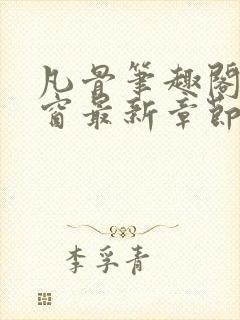 凡骨筆趣閣
窗最新章節
李孚青